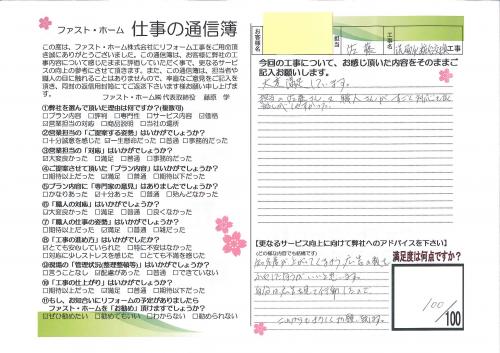 ファスト・ホーム 仕事の通信簿
この度は、ファスト・ホーム株式会社にリフォーム工事をご用命頂
き誠にありがとうございました。この通信簿は、お客様に弊社の工
事内容について感じたままに評価していただく事で、更なるサービ
スの向上の参考にさせて頂きます。また、この通信簿は、担当者や
職人の目に触れることはありませんので、率直なご意見をご記入
頂き、同封の返信用封筒にてご返送下さいます様お願い致します。
ファスト・ホーム㈱代表取締役 藤原 学
①弊社を選んで頂いた理由は何ですか?(複数可)
□プラン内容 □評判 □専門性 □サービス内容 □価格
□営業担当の対応 □商品説明 □当社の場所
②営業担当の「ご提案する姿勢」はいかがでしょうか?
□十分誠意を感じた □一生懸命だった □普通 □事務的だった
③営業担当の「対応」はいかがでしょうか?
□大変良かった □満足 □普通 □事務的だった
④ご提案させて頂いた「プラン内容」はいかがでしょうか?
□期待以上だった □満足 □普通 □期待以下だった
⑤プラン内容に「専門家の意見」はありましたでしょうか?
□かなりあった □十分あった □普通 □殆んどなかった
⑥「職人の対応」はいかがでしょうか?
□大変良かった □満足 □普通 □良くなかった
⑦「職人の仕事の姿勢」はいかがでしょうか?
□期待以上だった □満足 □普通 □雑だった
⑧「工事の進め方」はいかがでしたか?
□とても安心していられた □特に不安はなかった
□対応に少しストレスを感じた □とても不満を感じた
⑨現場の「管理状況(整理整頓等)」はいかがでしょうか?
□言うことなし □配慮があった □普通 □できていない
⑩「工事の仕上がり」はいかがでしょうか?
□期待以上だった □満足 □普通 □期待以下だった
⑪もし、お知合いにリフォームの予定がありましたら
ファスト・ホームを「お勧め」頂けますでしょうか?
□ぜひ勧めたい □勧めてもいい □わからない □勧められない
お客様名
担当
佐藤
工事
今回の工事について、お感じ頂いた内容をそのままご
記入お願いします。
大変満足しています。
【更なるサービス向上に向けて弊社へのアドバイスを下さい】
(どの様な内容でも結構です)
満足度は何点ですか?
100/100